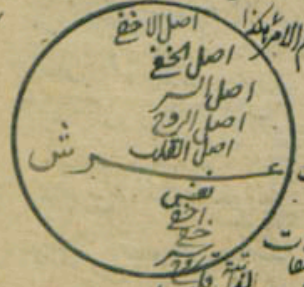 الامر هكذا
اصل الاخفے
اصل الخفے
اصل السر
اصل الروح
اصل القلب
عرش
نفس
اخفے
خفے
سر
روح